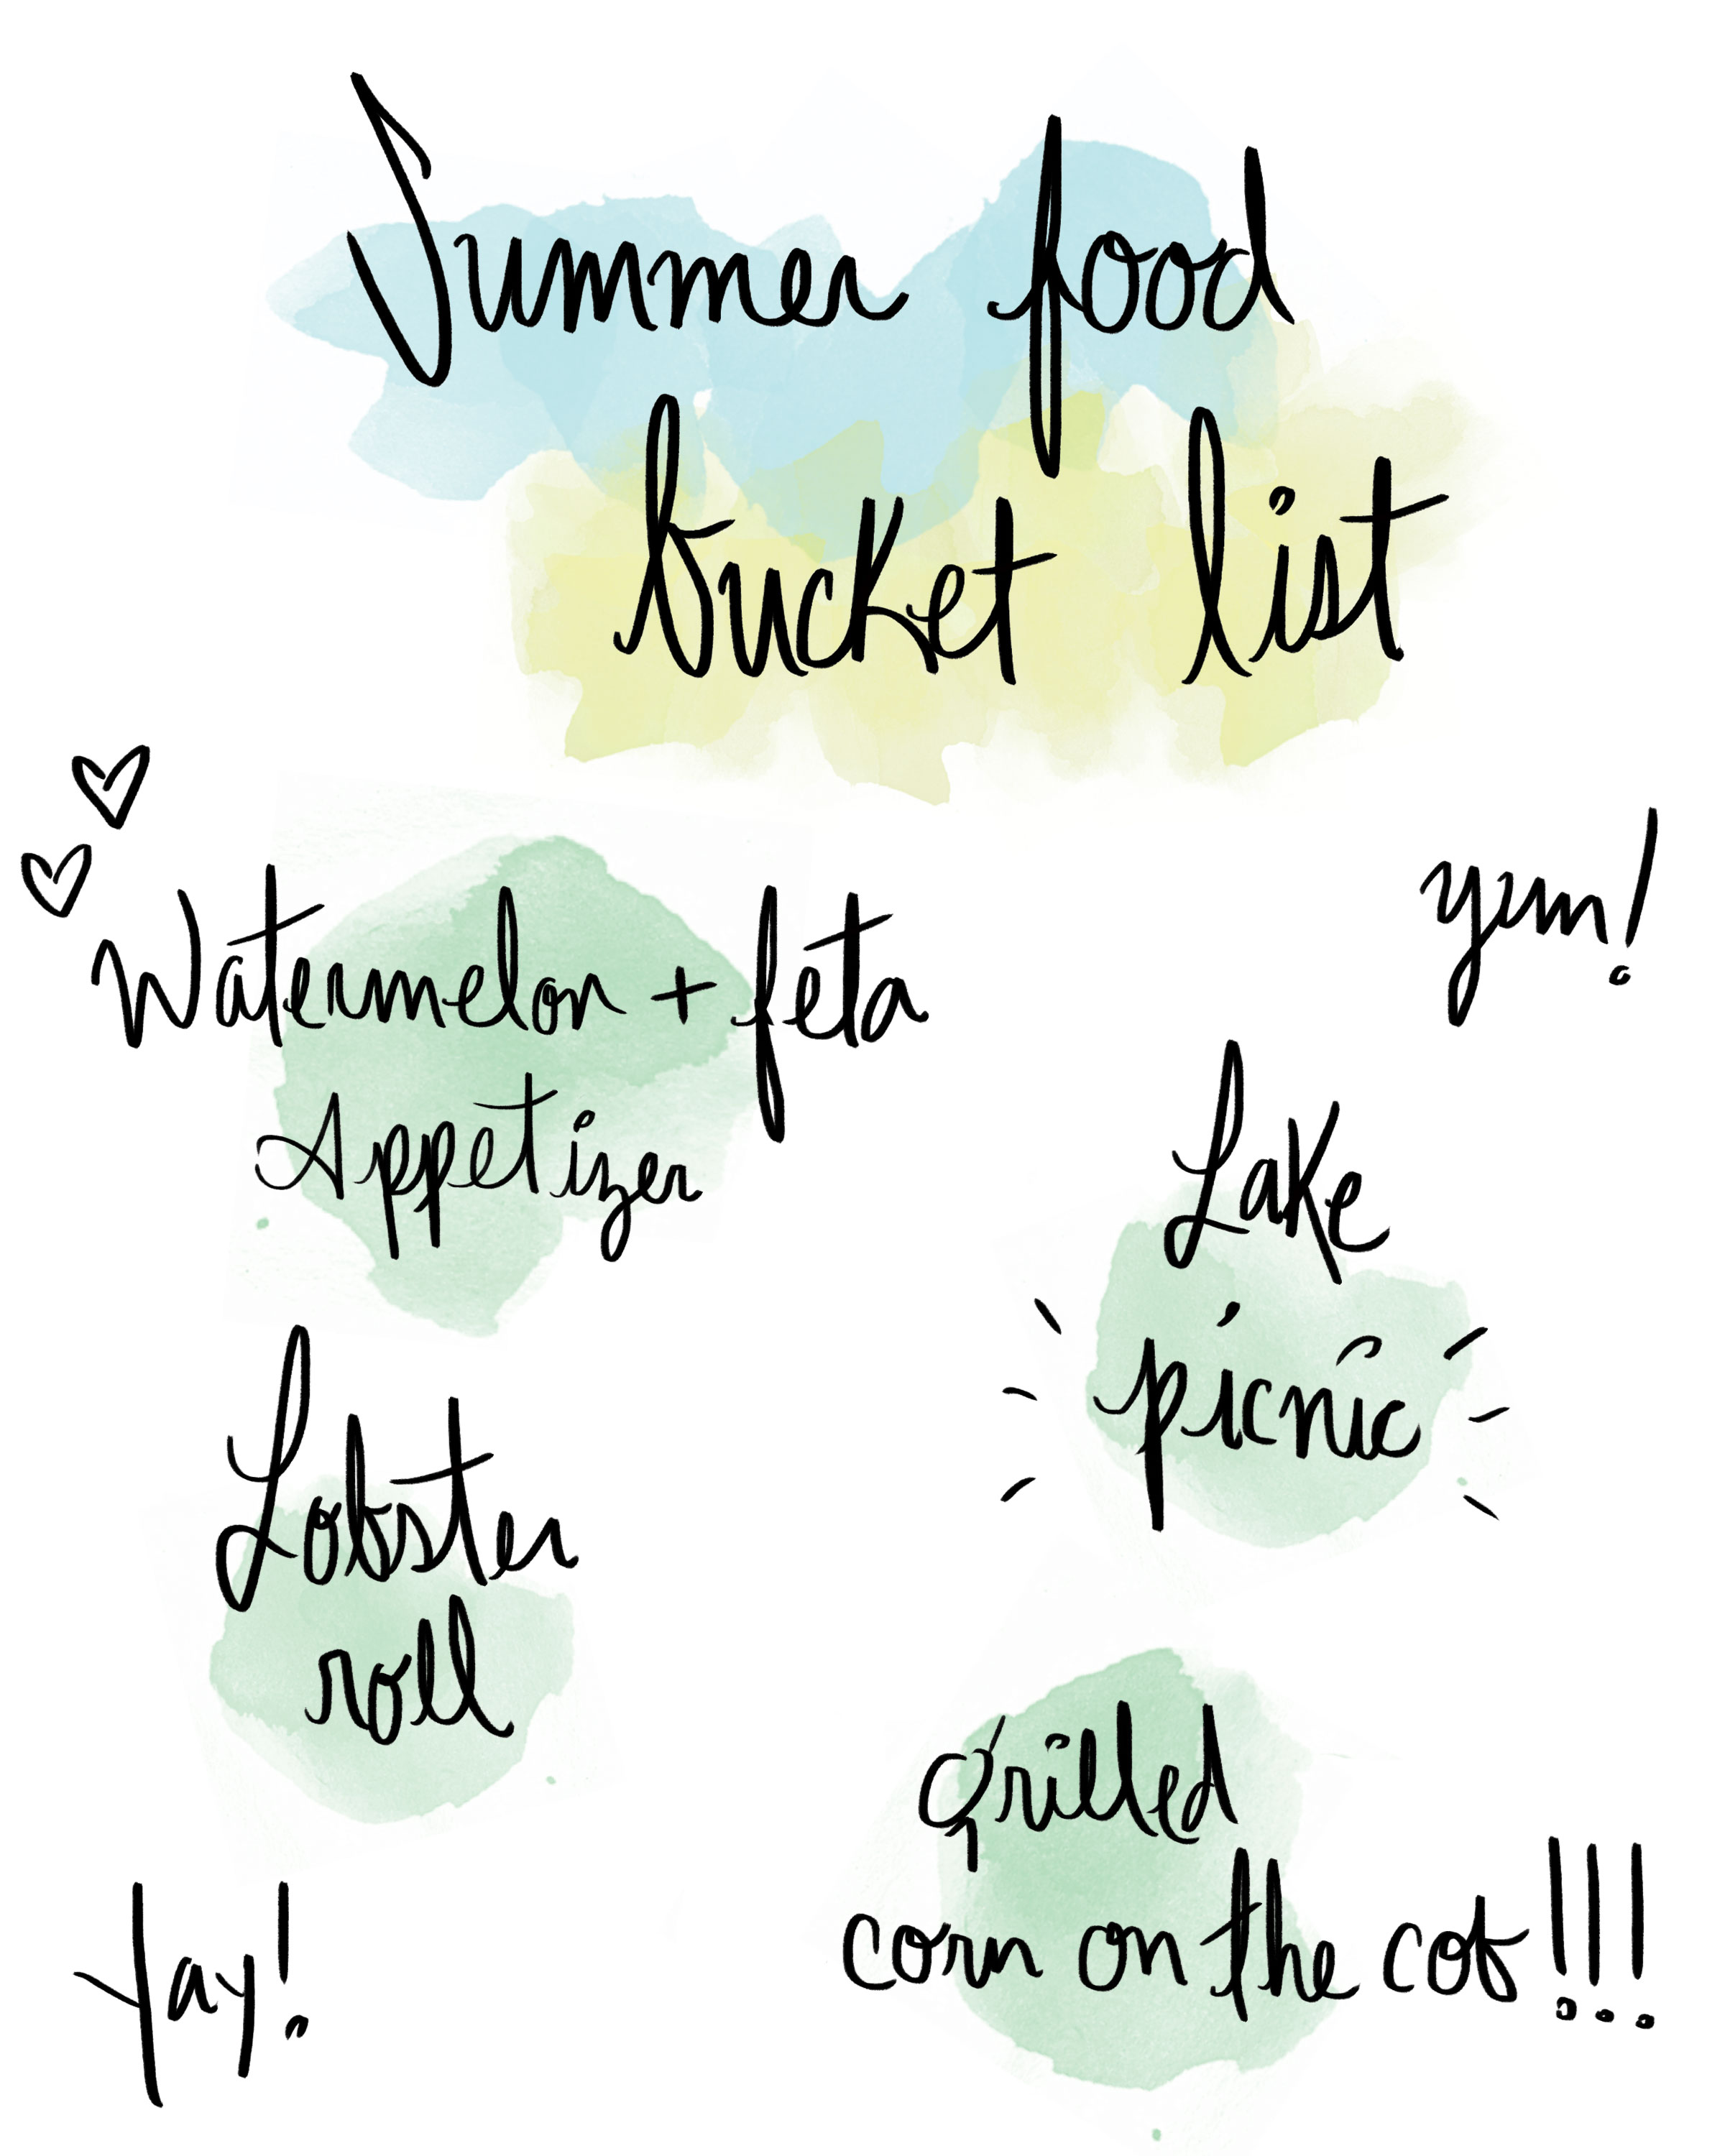 Summer food
bucket list
yum!
Watermelon + feta
Appetizer
Lake
picnic
Lobster
roll
grilled
corn on the cob!!!
Yay!